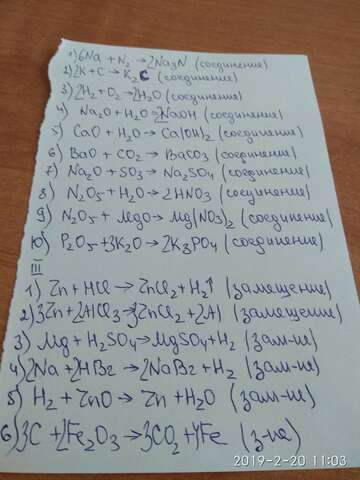 1) 6Na + N₂ → 2Na₃N (соединение)
2) 2K + C → K₂C (соединение)
3) 2H₂ + O₂ → 2H₂O (соединение)
4) Na₂O + H₂O → 2NaOH (соединение)
5) CaO + H₂O → Ca(OH)₂ (соединение)
6) BaO + CO₂ → BaCO₃ (соединение)
7) Na₂O + SO₃ → Na₂SO₄ (соединение)
8) N₂O₅ + H₂O → 2HNO₃ (соединение)
9) N₂O₅ + MgO → Mg(NO₃)₂ (соединение)
10) P₂O₅ + 3K₂O → 2K₃PO₄ (соединение)
III
1) Zn + HCl → ZnCl₂ + H₂↑ (замещение)
2) 3Zn + 2AlCl₃ → 3ZnCl₂ + 2Al (замещение)
3) Mg + H₂SO₄ → MgSO₄ + H₂ (зам-ие)
4) 2Na + 2HBr → 2NaBr + H₂ (зам-ие)
5) H₂ + ZnO → Zn + H₂O (зам-ие)
6) 3C + 2Fe₂O₃ → 3CO₂ + 4Fe
2019-2-20 11:03